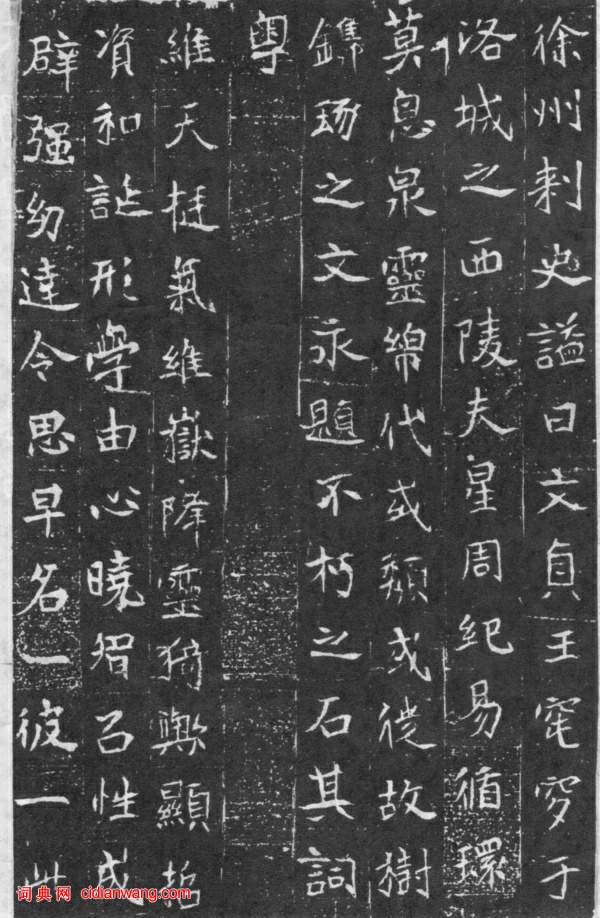 徐州刺史謚曰文貞王窀穸于
洛城之西陵夫星周紀易循環
莫息泉靈綿代或頹或徙故樹
鐫琢之文永題不朽之石其詞
粵
維天挺氣維嶽降靈猗歟顯哲
資和誕形學由心曉智以性成
辟强幼達令思早名一彼一此
词典网 cidianwang.com